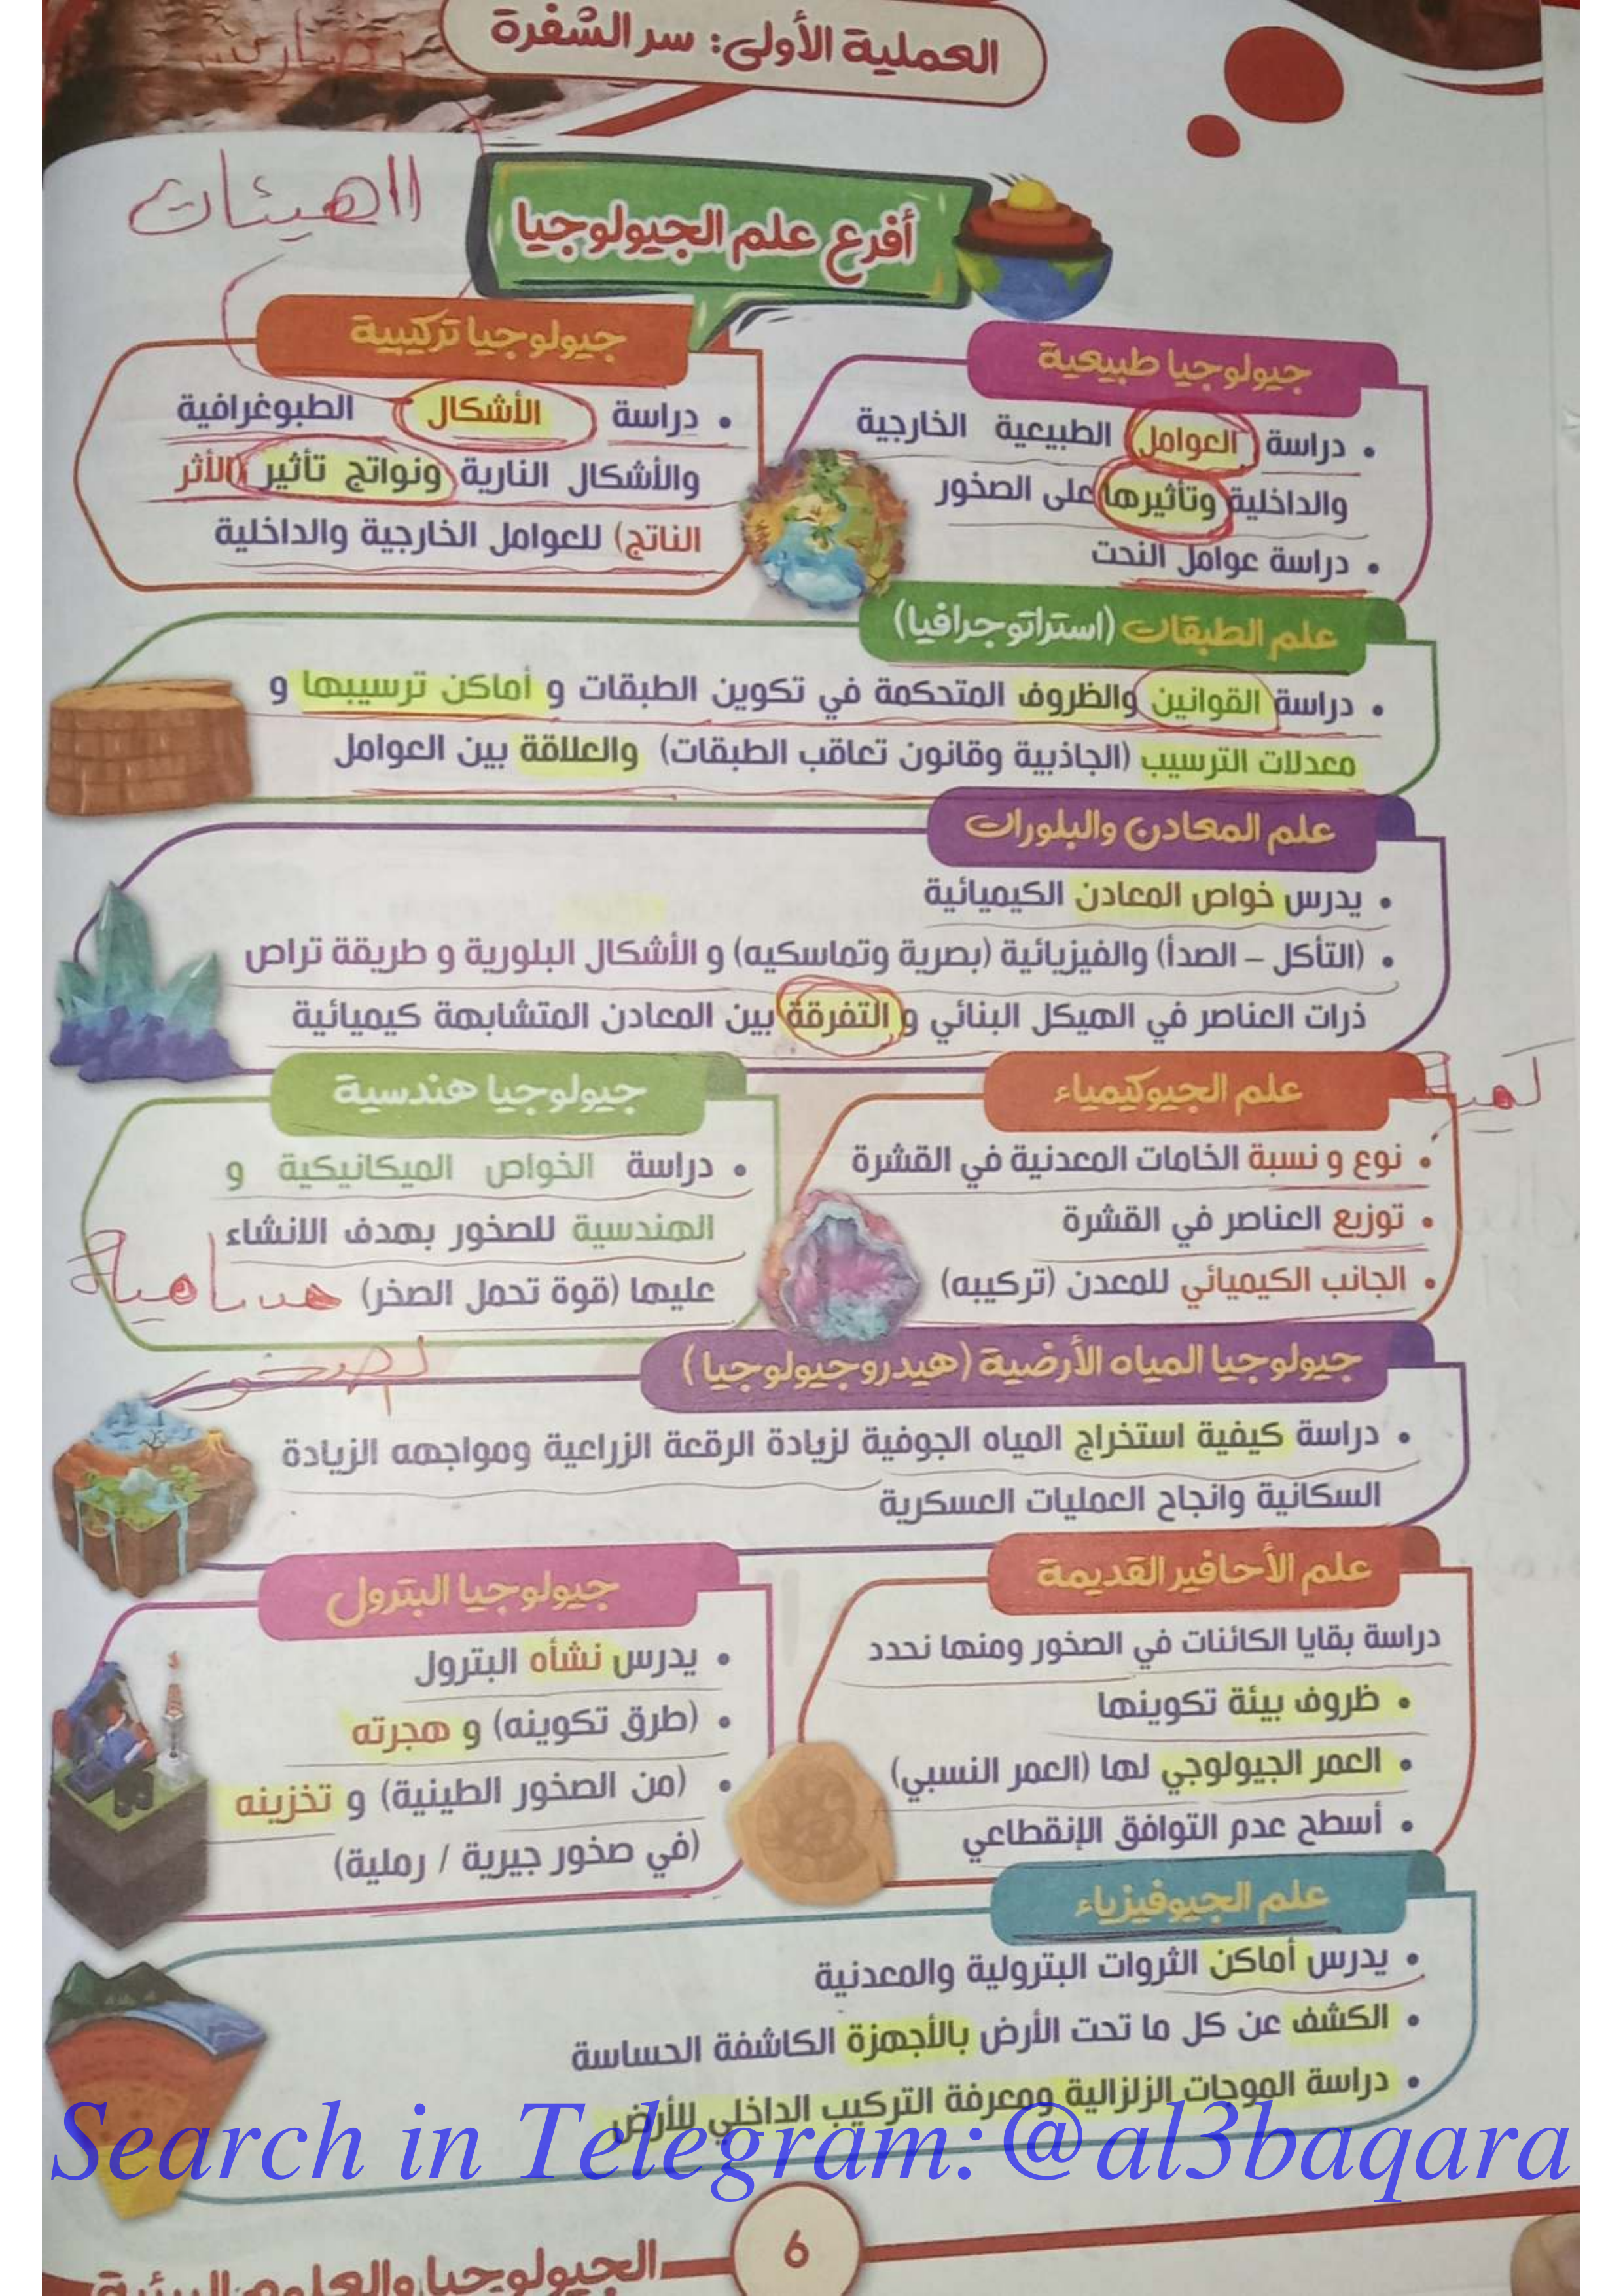 العملية الأولى: سر الشفرة
تضاريس
الهيئات
أفرع علم الجيولوجيا
جيولوجيا طبيعية
دراسة العوامل الطبيعية الخارجية
والداخلية وتأثيرها على الصخور
دراسة عوامل النحت
جيولوجيا تركيبية
دراسة الأشكال الطبوغرافية
والأشكال النارية ونواتج تأثير (الأثر
الناتج) للعوامل الخارجية والداخلية
علم الطبقات (استراتوجرافيا)
دراسة القوانين والظروف المتحكمة في تكوين الطبقات و أماكن ترسيبها و
معدلات الترسيب (الجاذبية وقانون تعاقب الطبقات) والعلاقة بين العوامل
علم المعادن والبلورات
يدرس خواص المعادن الكيميائية
(التأكل – الصدأ) والفيزيائية (بصرية وتماسكيه) و الأشكال البلورية و طريقة تراص
ذرات العناصر في الهيكل البنائي و التفرقة بين المعادن المتشابهة كيميائية
علم الجيوكيمياء
نوع و نسبة الخامات المعدنية في القشرة
توزيع العناصر في القشرة
الجانب الكيميائي للمعدن (تركيبه)
جيولوجيا هندسية
دراسة الخواص الميكانيكية و
الهندسية للصخور بهدف الانشاء
عليها (قوة تحمل الصخر)
جيولوجيا المياه الأرضية (هيدروجيولوجيا)
دراسة كيفية استخراج المياه الجوفية لزيادة الرقعة الزراعية ومواجهه الزيادة
السكانية وانجاح العمليات العسكرية
علم الأحافير القديمة
دراسة بقايا الكائنات في الصخور ومنها نحدد
ظروف بيئة تكوينها
العمر الجيولوجي لها (العمر النسبي)
أسطح عدم التوافق الإنقطاعي
جيولوجيا البترول
يدرس نشأه البترول
(طرق تكوينه) و هجرته
(من الصخور الطينية) و تخزينه
(في صخور جيرية / رملية)
علم الجيوفيزياء
يدرس أماكن الثروات البترولية والمعدنية
الكشف عن كل ما تحت الأرض بالأجهزة الكاشفة الحساسة
دراسة الموجات الزلزالية ومعرفة التركيب الداخلي للأرض
Search in Telegram:@al3baqara
6
الجيولوجيا والعلوم البيئية